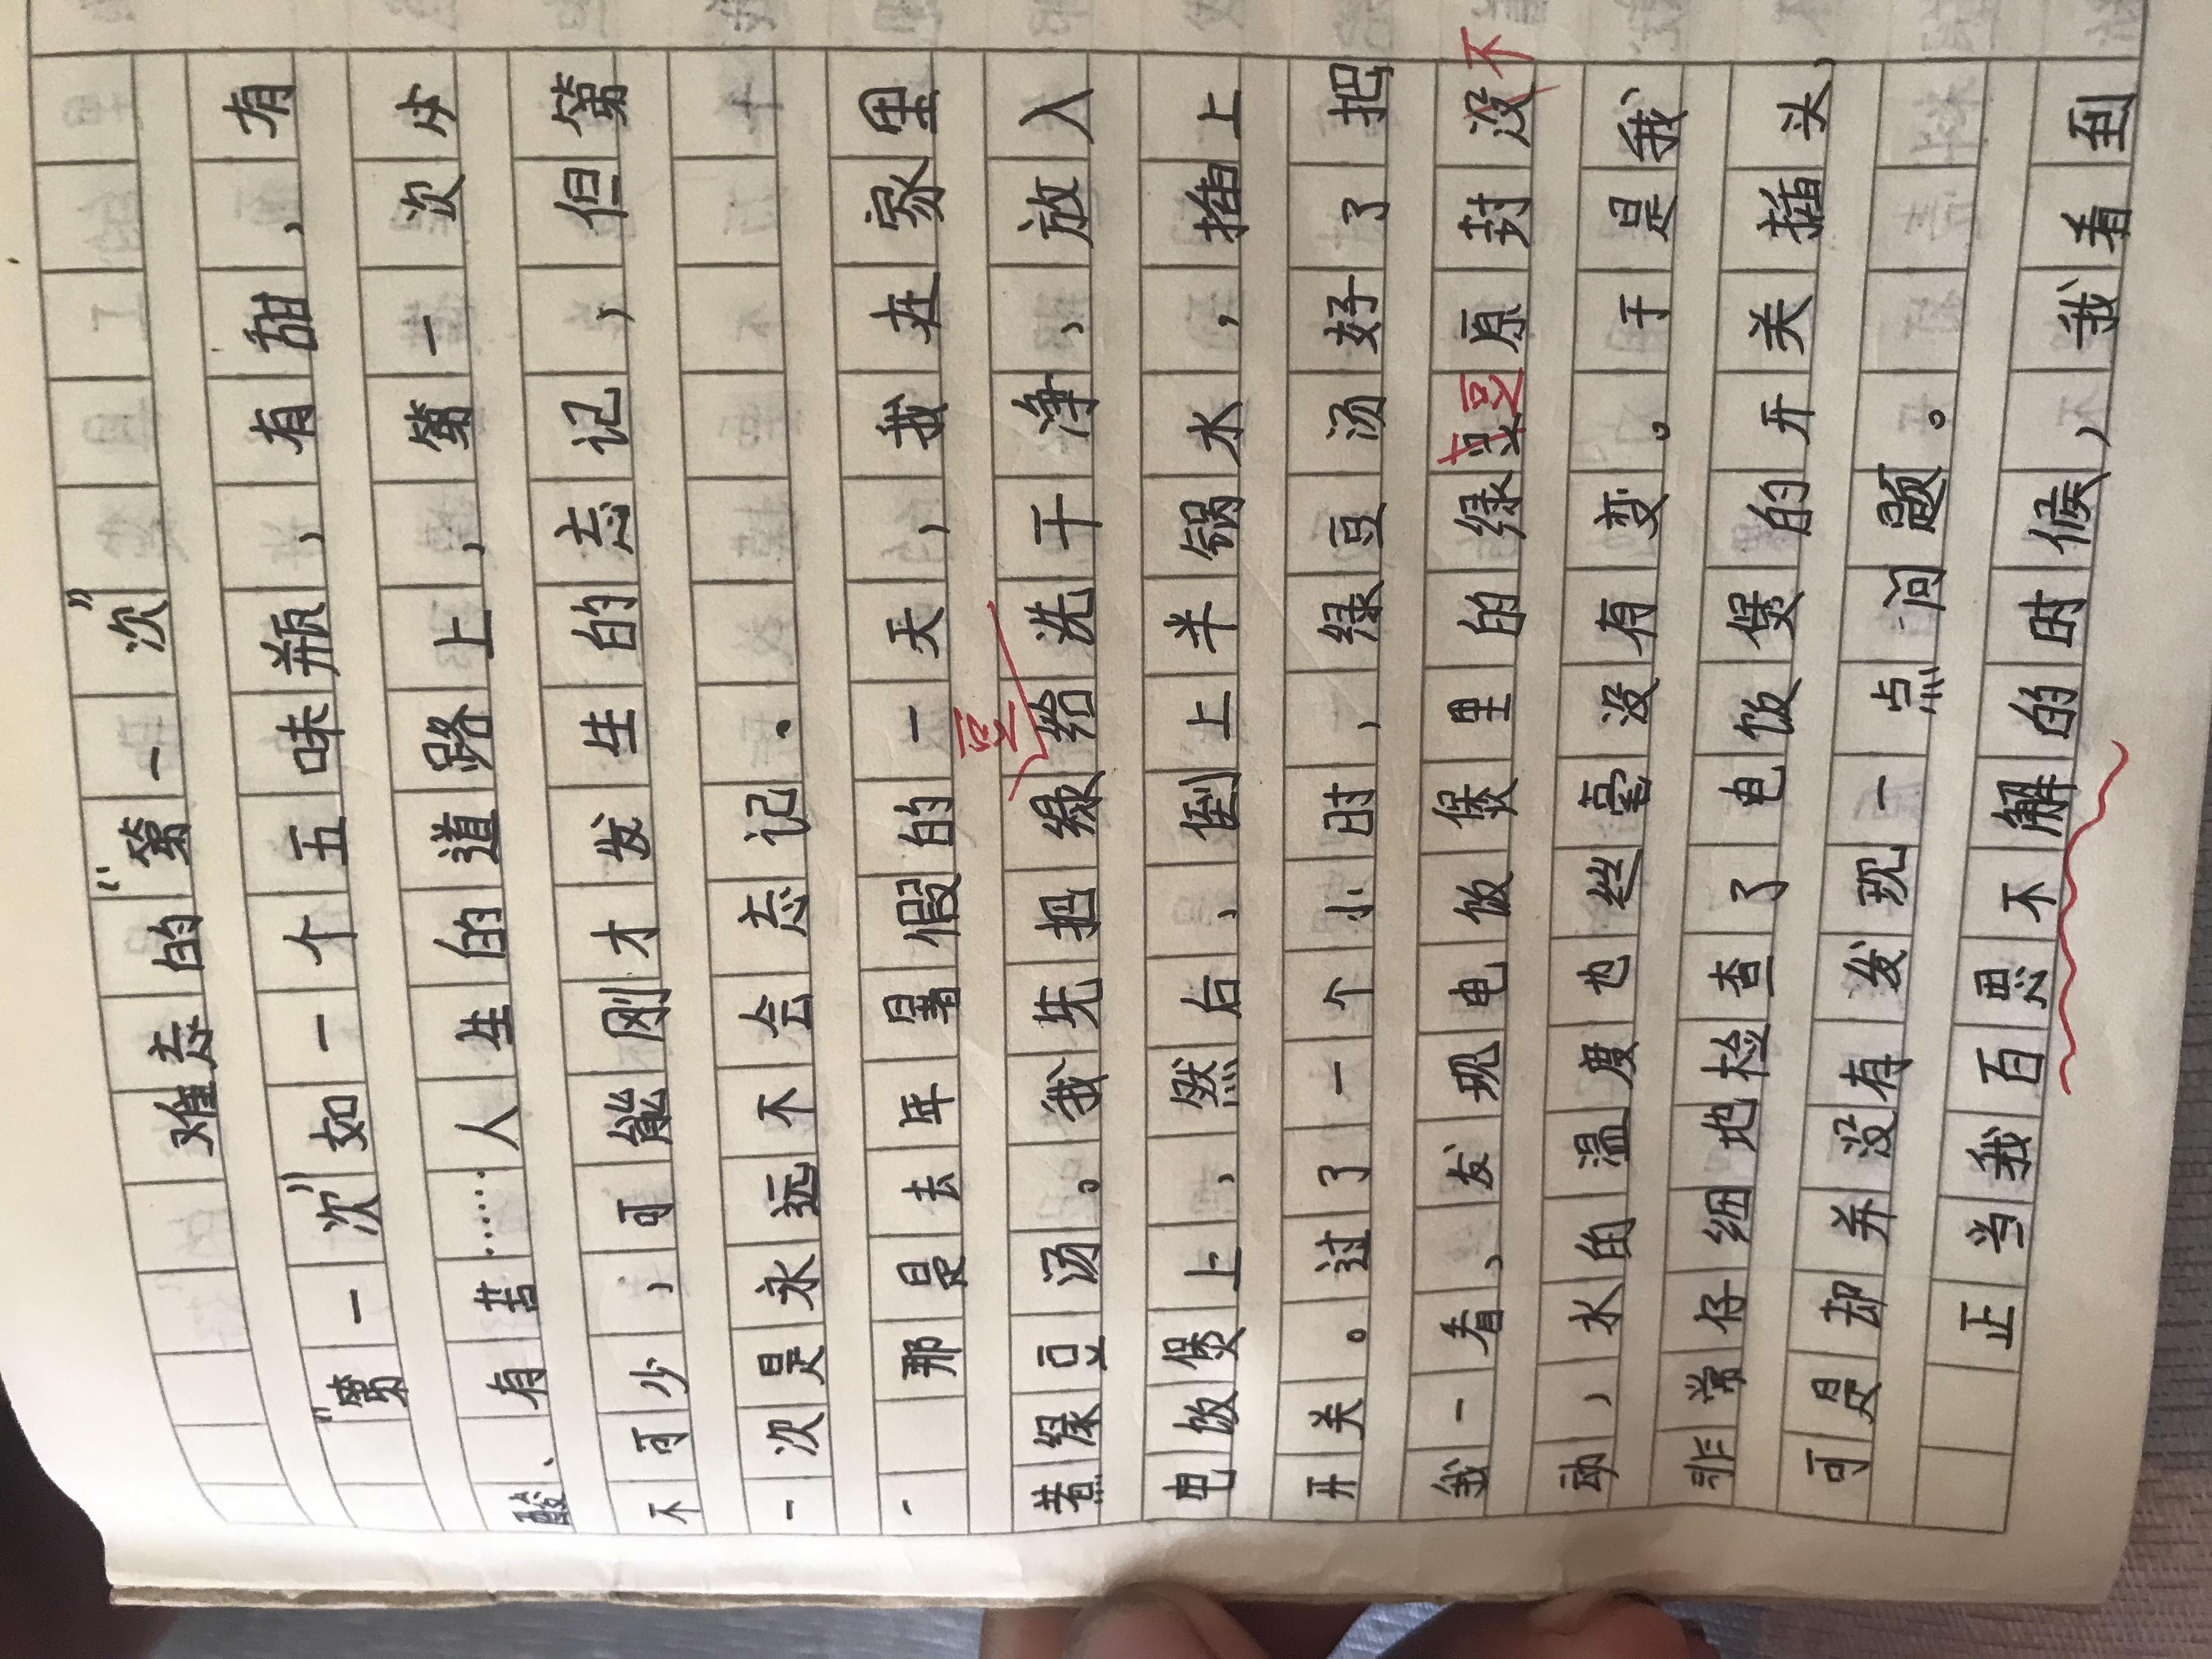 难忘的“第一次”
“第一次”如一个五味瓶，有甜，有
酸、有苦……人生的道路上，第一次必
不可少，可能刚才发生的忘记，但第
一次是永远不会忘记.
那是去年暑假的一天，我在家里
豆
煮绿豆汤。我先把绿给洗干净、放入
电饭煲上，然后、倒上半锅水，插上
开关。过了一个小时，绿豆汤好了把
豆 不
我一看、发现电饭煲里的绿原封没
动，水的温度也丝毫没有变。于是我、
非常仔细地检查了电饭煲的开关插头，
可是却并没有发现一点问题。
正当我百思不解的时候，我看到